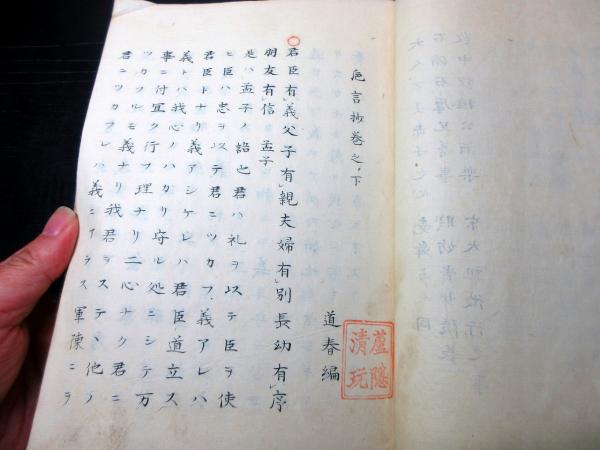 巵言抄巻之下
道春編
蘆隠清玩
君臣有義父子有親夫婦有別長幼有序
朋友有信 孟子
是ハ孟子ノ語也君ハ礼ヲ以テ臣ヲ使
ヒ臣ハ忠ヲ以テ君ニツカフ義アレハ
君臣トナリ義アシケレハ君臣ノ道立ス
義トハ我心ノハカリ守ル処ニシテ万
事ニ付宜ク行フ理ナリ二心ナク君ニ
ツカフルモ義ナリ我君ヲステヽ他ノ
君ニツカフレハ義ニアラス軍陳ニヲ